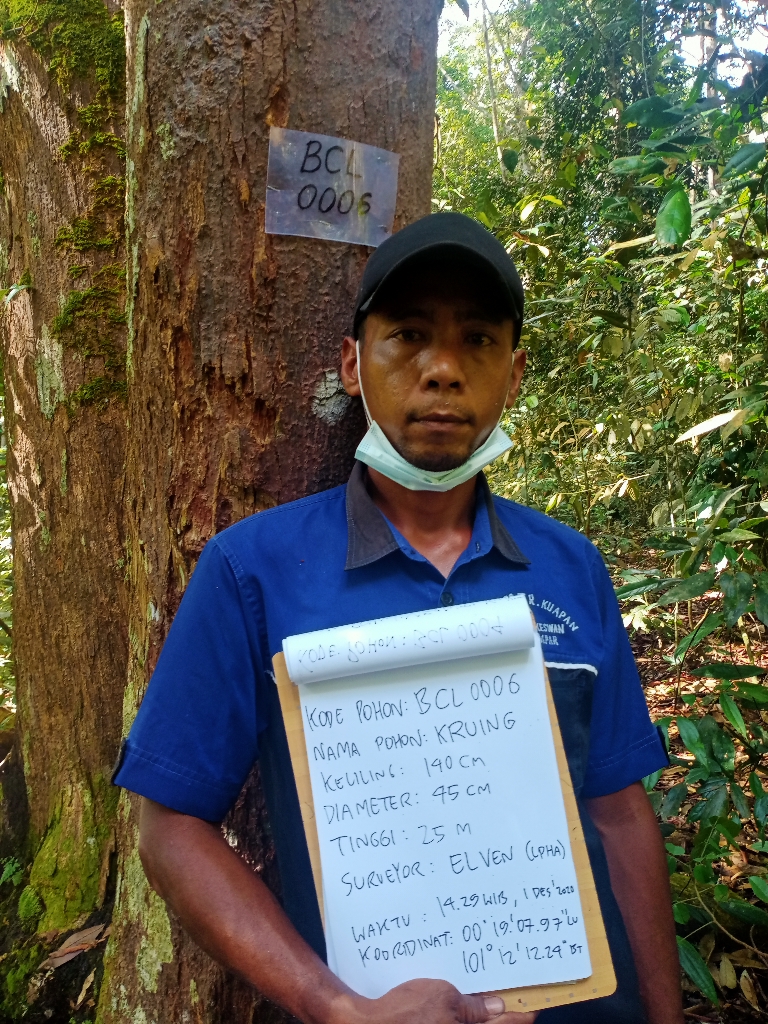 BCL
0006
R. KUAPAN
KESWAN
KODE POHON:
KODE POHON: BCL 0006
NAMA POHON: KRUING
KELILING: 140 CM
DIAMETER: 45 CM
TINGGI: 25 M
SURVEYOR: ELVEN (LPHA)
WAKTU: 14.29 WIB, 1 Des' 2020
KOORDINAT: 00° 19' 07.97" LU
101° 12' 12.24" BT